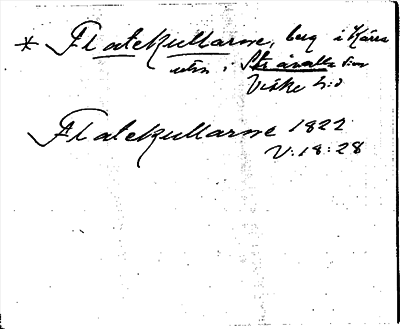 * Flatekullarne, berg i Kärra
utm i Stråvalla sn
Viske hd
Flatekullarne 1822
V:18:28